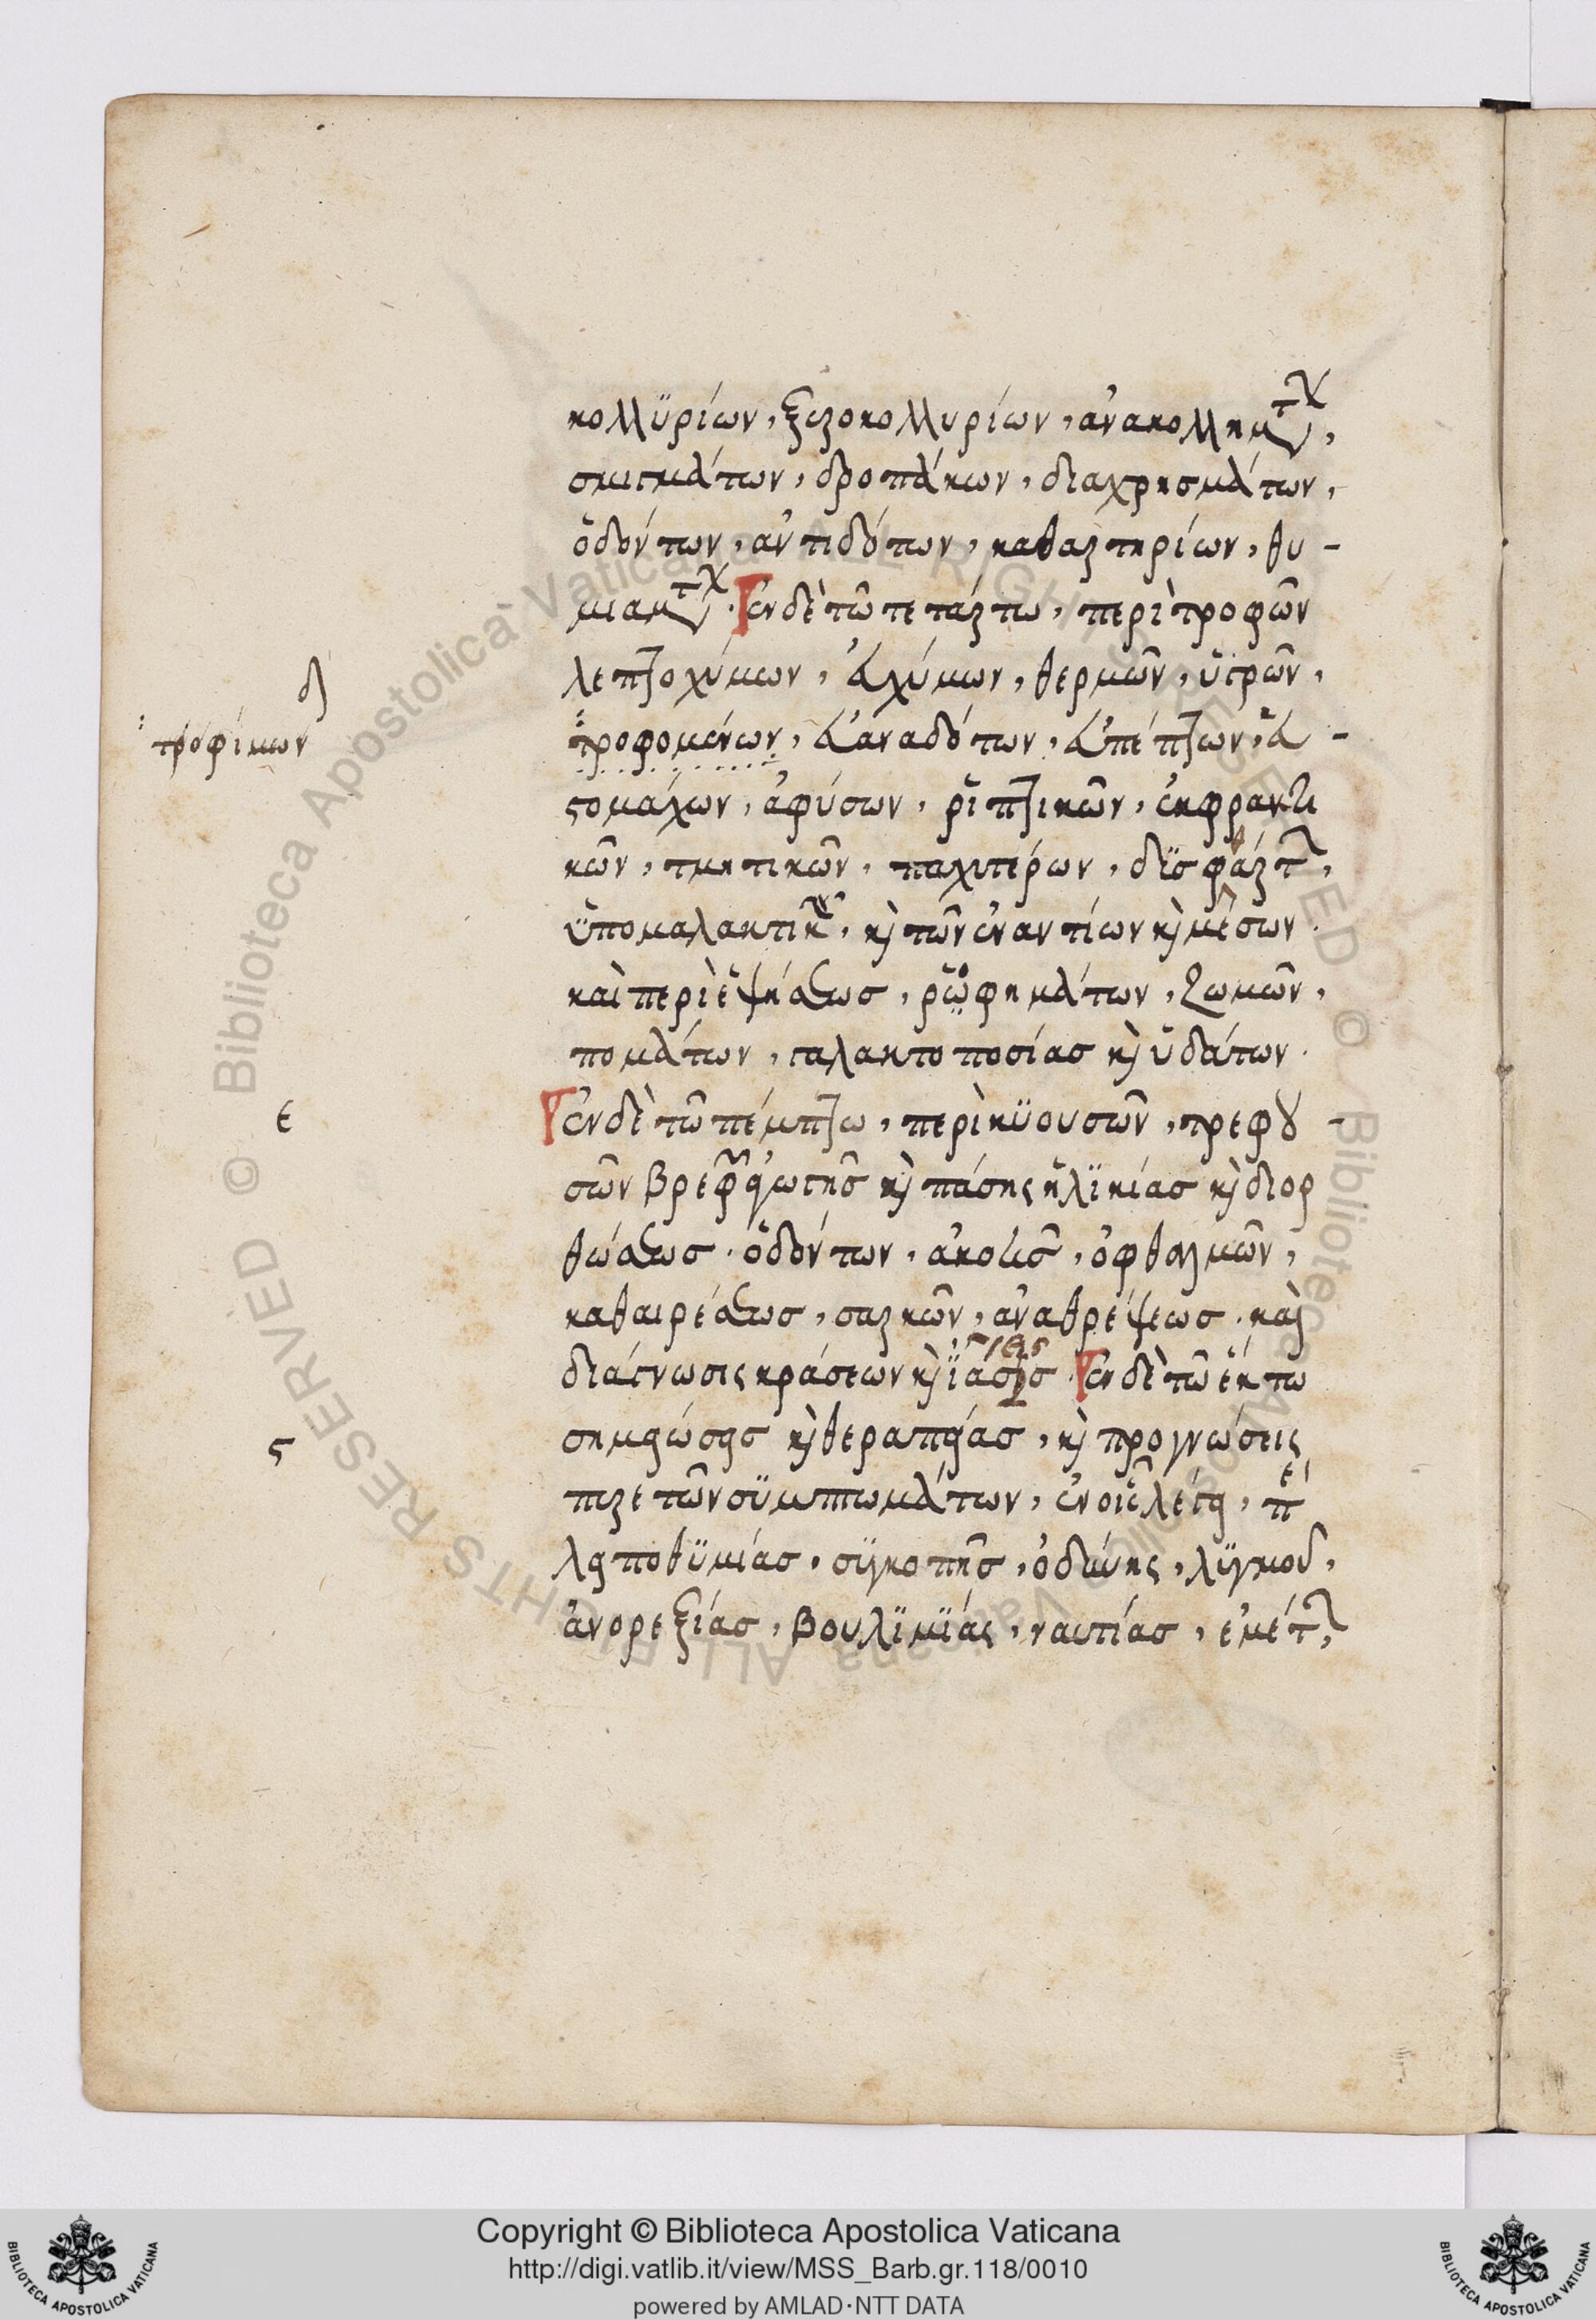 κολλϋρίων, ξηροκολλυρίων, ἀνακολλημάτων,
σμιγμάτων, δροπάκων, διαχρησμάτων,
ὀδόντων, ἀντιδότων, καθαρτηρίων, θυ-
μιαμάτων. Ἐν δὲ τῶ τετάρτω, περὶ τροφῶν
λεπτοχύμων, εὐχύμων, θερμῶν, ὑγρῶν,
δ
τροφίμων
τροφομένων, εὐαναδότων, εὐπέπτων, εὐ-
στομάχων, ἀφύσων, ῥϊπτικῶν, ἐκφρακτι
κῶν, τμητικῶν, παχυτέρων, δϊσφάρτων,
ὑπομαλακτικῶν, καὶ τῶν ἐναντίων καὶ μέσων.
καὶ περὶ ἑψήσεως, ῥοφημάτων, ζωμῶν,
πομάτων, γαλακτοποσίας καὶ ὑδάτων.
ε
Ἐν δὲ τῶ πέμπτω, περὶ κϋουσῶν, τρεφου-
σῶν βρεφῶν νεότητος καὶ πάσης ἡλϊκίας καὶ διορ
θώσεως. ὀδόντων, ἀκοῆς, ὀφθαλμῶν,
καθαιρέσεως, σαρκῶν, ἀναθρέψεως. καὶ
διάγνωσις κράσεων καὶ ἰάσεις. Ἐν δὲ τῶ ἕκτω
ς
σημειώσεις καὶ θεραπείας, καὶ προγνώσεις
πυρετῶν συμπτωμάτων, ἐν οἷς λέγει, περὶ
λειποθϋμίας, σϋγκοπῆς, ὀδύνης, λϋγμοῦ,
ἀνορεξίας, βουλϊμϊάς, ναυτίας, ἐμέτων,
Copyright © Biblioteca Apostolica Vaticana
http://digi.vatlib.it/view/MSS_Barb.gr.118/0010
powered by AMLAD·NTT DATA